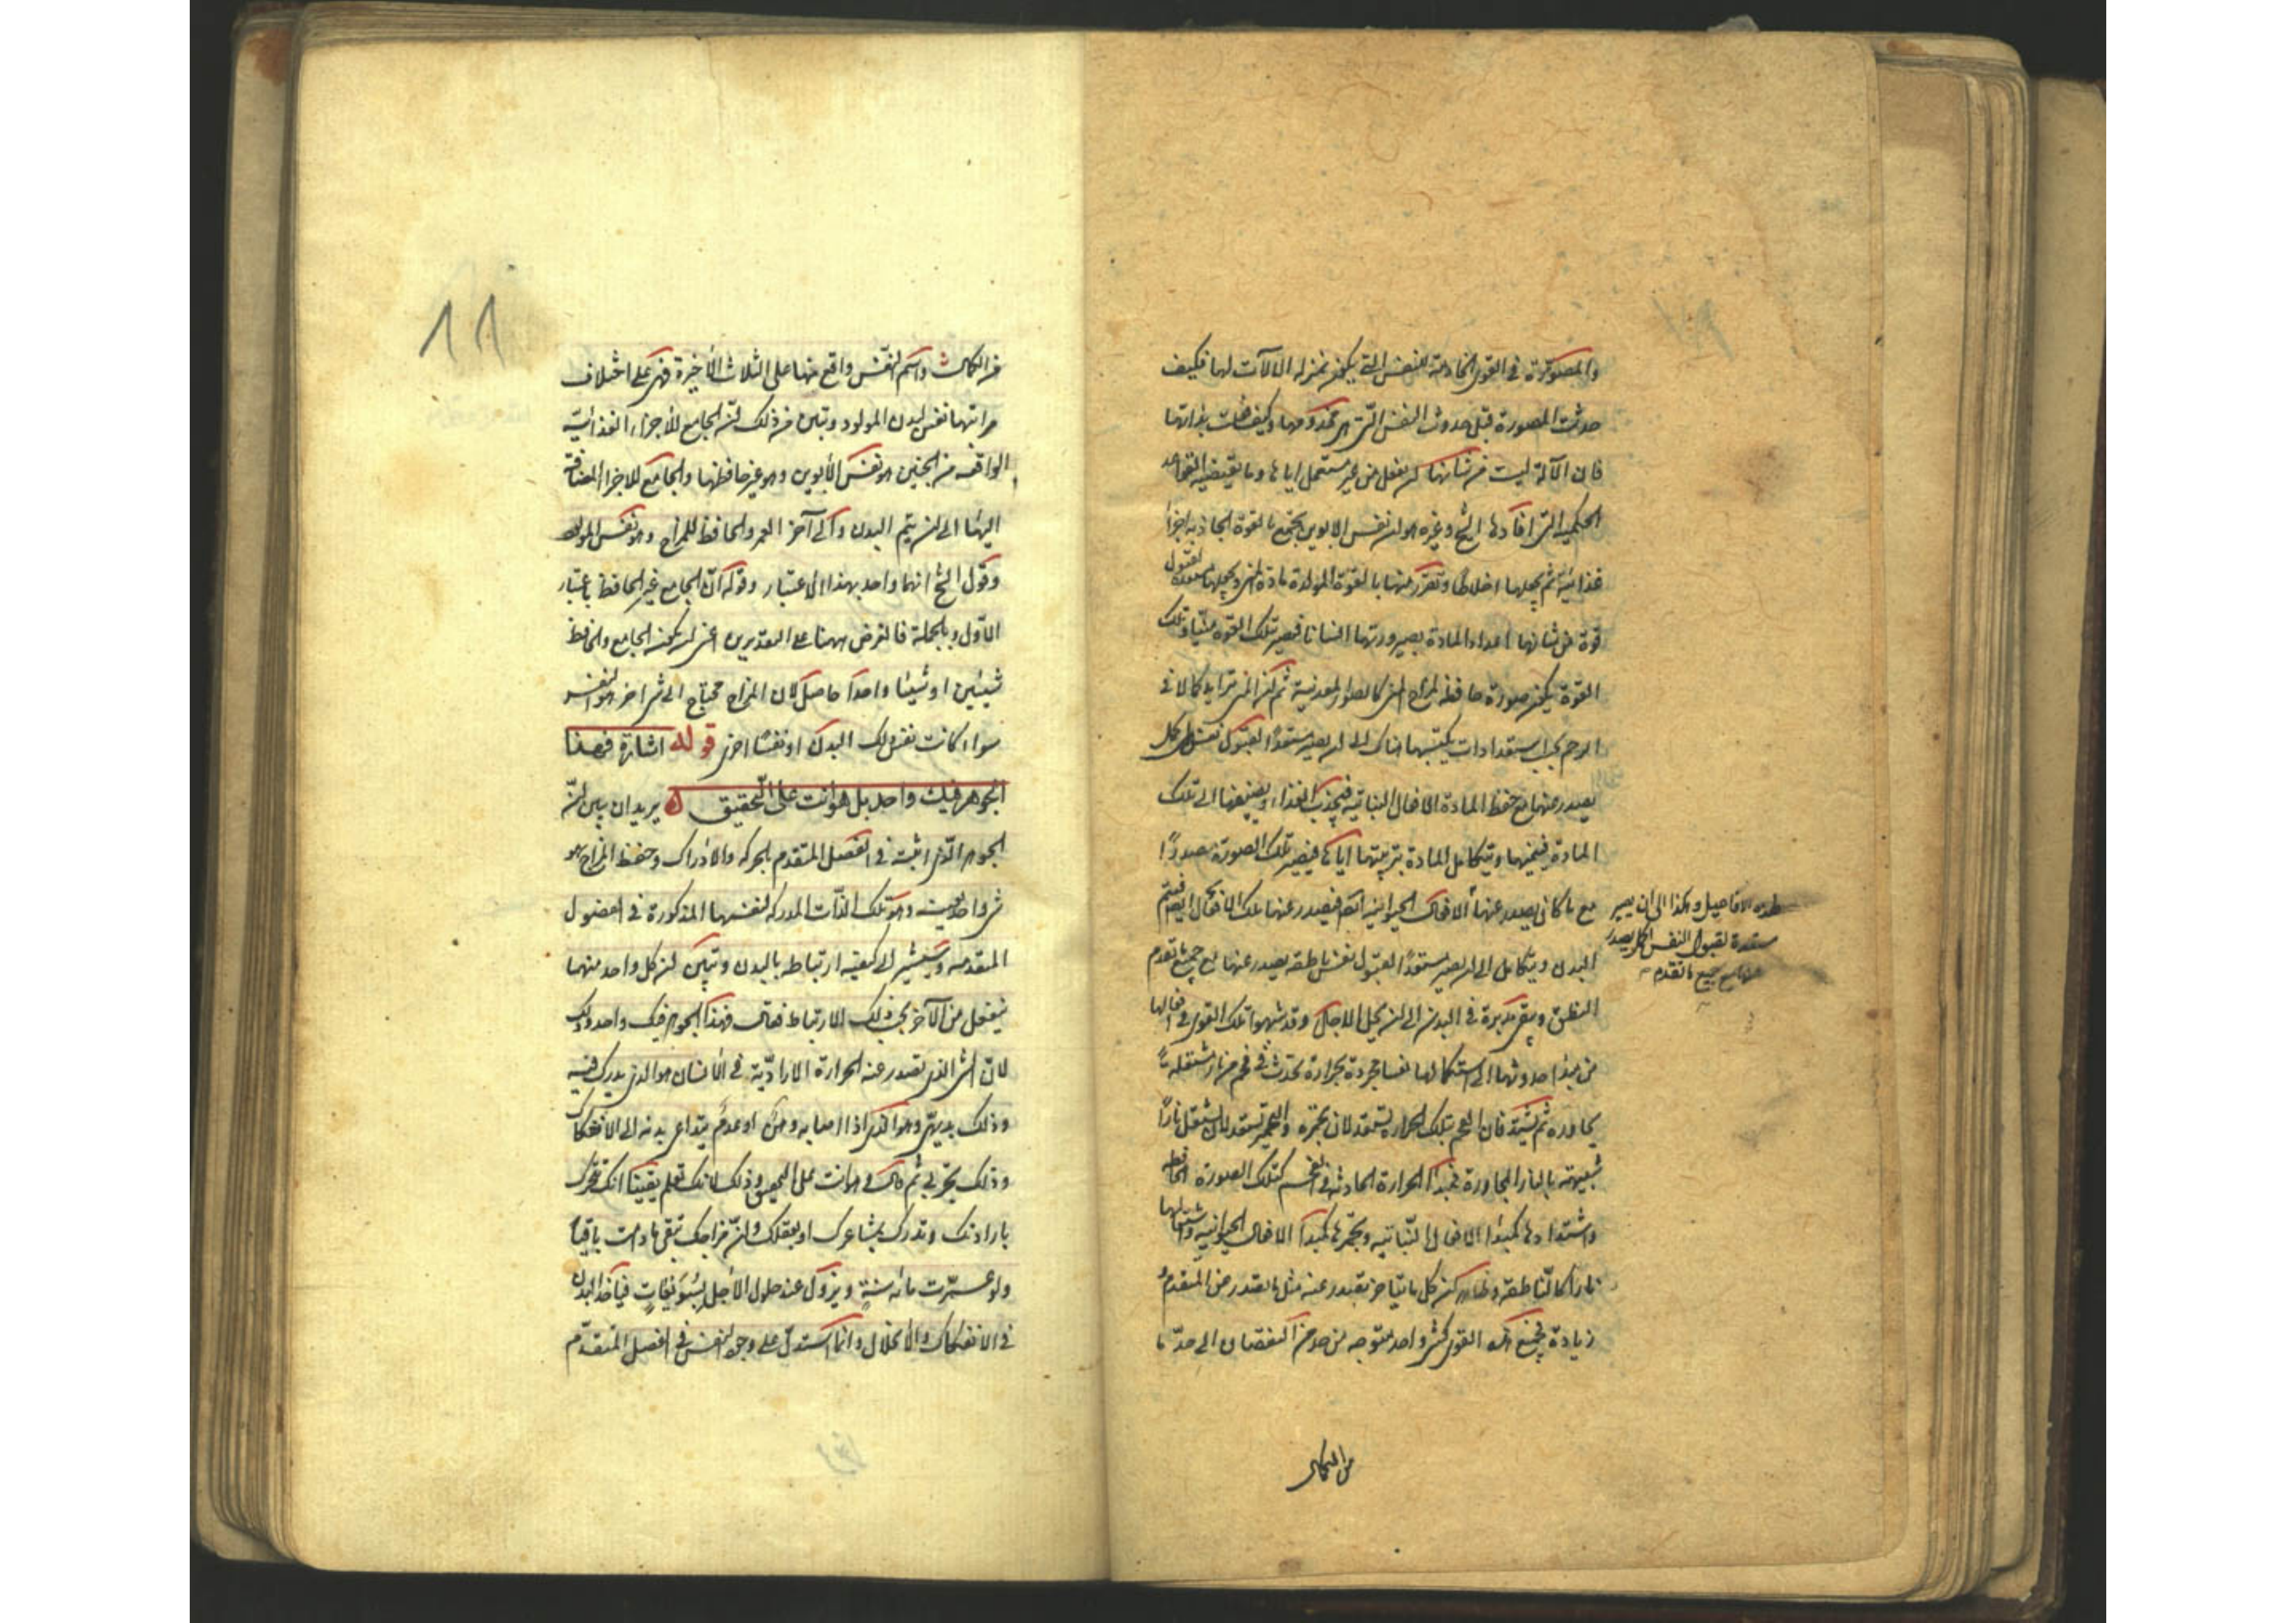 والمصورة في القوى الخادمة للنفس التي يكون بمنزلة الآلات لها فكيف
حدثت المصورة قبل حدوث النفس التي هي مخدومها وكيف فعلت بذاتها
فان الآلة ليست من شانها ان يفعل من غير مستعمل اياها وما يقتضيه القواعد
الحكمية التي افادها الشيخ وغيره هو ان نفس الابوين يجمع بالقوة الجاذبة اجزا
غذائية ثم يجعلها اخلاطا وتفرز منها بالقوة المولدة مادة المني ويجعلها مستعدة لقبول
قوة من شانها اعداد المادة بصيرورتها انسانا فتصير تلك القوة منيا وتلك
القوة يكون صورة حافظة لمزاج المني كالصور المعدنية ثم ان المني تتزايد كمالا في
الرحم بحسب استعدادات يكتسبها هناك الى ان يصير مستعدا لقبول نفس اكمل
يصدر عنها مع حفظ المادة الافعال النباتية فيجذب الغذاء ويضيفها الى تلك
المادة فينميها ويتكامل المادة بتربيتها اياها فيصير تلك الصورة مصدرا
مع ما كان يصدر عنها الافعال الحيوانية ايضا فيصدر عنها تلك الافعال ايضا فيتم
البدن ويتكامل الى ان يصير مستعدا لقبول نفس ناطقة يصدر عنها مع جميع ما تقدم
النطق ويبقى مدبرة في البدن الى ان يحل الاجل وقد شبهوا تلك القوى في افعالها
من مبدا حدوثها الى استكمالها نفسا مجردة بحرارة تحدث في فحم من نار مشتعلة
يجاوره ثم يشتد فان الفحم بتلك الحرارة يستعد لان يتجمر وبالتجمر يستعد لان يشتعل نارا
شبيهة بالنار المجاورة فمبدا الحرارة الحادثة في الفحم كتلك الصورة الحافظة
واشتدادها كمبدا الافعال النباتية وتجمرها كمبدا الافعال الحيوانية واشتعالها
نارا كالناطقة وظاهر ان كل ما يتاخر يصدر عنه مثل ما يصدر من المتقدم
زيادة فجميع هذه القوى كشي واحد متوجه من حد من النقصان الى حد ما
هذه الافاعيل وهكذا الى ان يصير
مستعدة لقبول النفس اكمل يصدر
عنها مع جميع ما تقدم
من الكمال
١١
من الكمال واسم النفس واقع منها على الثلاث الأخيرة فهي على اختلاف
مراتبها نفس لبدن المولود وتبين من ذلك ان الجامع للأجزاء الغذائية
الواقعة من الجنين هو نفس الأبوين وهو غير حافظها والجامع للاجزا المضافة
اليها الى ان يتم البدن والى آخر العمر والحافظ للمزاج وهو نفس المولود
وقول الشيخ انها واحد بهذا الاعتبار وقوله ان الجامع غير الحافظ باعتبار
الأول وبالجملة فالغرض ههنا على التقديرين اعني ان يكون الجامع والحافظ
شيئين او شيئا واحدا حاصل لان المزاج محتاج الى شي اخر هو النفس
سواء كانت نفس ذلك البدن او نفسا اخرى قوله اشارة فهذا
الجوهر فيك واحد بل هو انت على التحقيق يريد ان يبين ان
الجوهر الذي اثبته في الفصل المتقدم بالحركة والادراك وحفظ المزاج هو
شي واحد فيك وهو تلك الذات المدركة لنفسها المذكورة في الفصول
المتقدمة ويشير الى كيفية ارتباطه بالبدن وتبين ان كل واحد منهما
ينفعل من الآخر بحسب ذلك الارتباط فقال فهذا الجوهر فيك واحد وذلك
لان الشي الذي تصدر عنه الحرارة الارادية في الانسان هو الذي يدرك فيه
وذلك بديهي وهو الذي اذا اصابه وهن او عدم يتداعى بدنه الى الانفكاك
وذلك تجربي ثم قال وهو انت على التحقيق وذلك لانك تعلم يقينا انك تتحرك
بارادتك وتدرك بمشاعرك او بعقلك وان مزاجك تبقى ما دمت باقيا
ولو عمرت مائة سنة ويزول عند حلول الأجل بسويعات فياخذ البدن
في الانفكاك والانحلال وانما استدل على وجود النفس في الفصل المتقدم